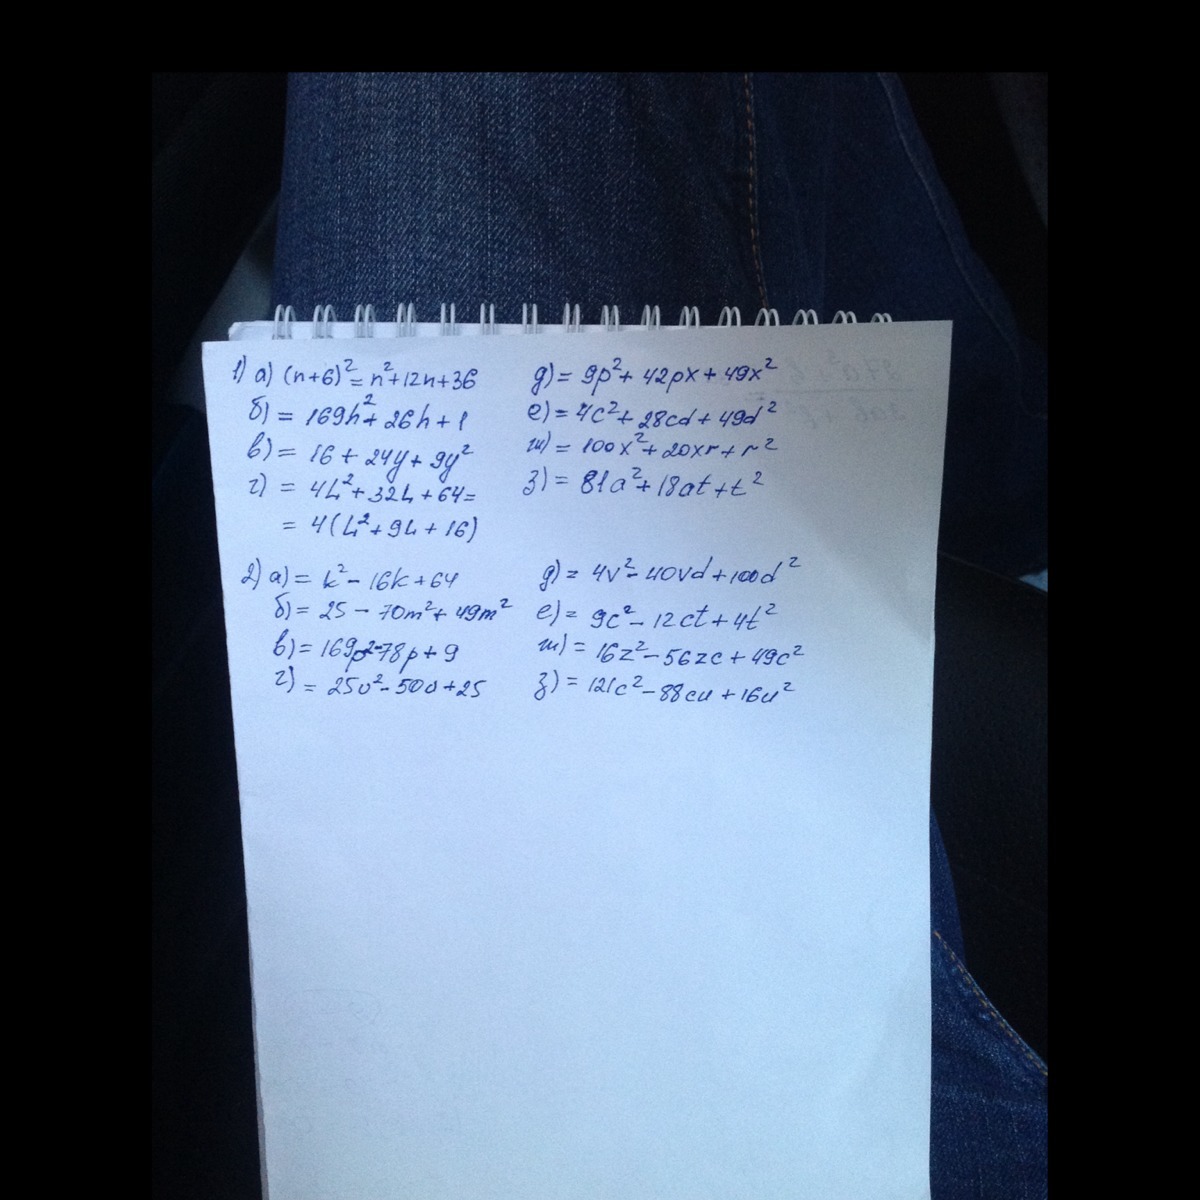 1) а) (n+6)² = n²+12n+36
б) = 169h²+26h+1
в) = 16+24y+9y²
г) = 4h²+32h+64=
= 4(h²+9h+16)
д) = 9p²+42px+49x²
е) = 4c²+28cd+49d²
ж) = 100x²+20xr+r²
з) = 81a²+18at+t²
2) а) = k²-16k+64
б) = 25-70m²+49m²
в) = 169p²-78p+9
г) = 25v²-50v+25
д) = 4v²-40vd+100d²
е) = 9c²-12ct+4t²
ж) = 16z²-56zc+49c²
з) = 121c²-88cu+16u²